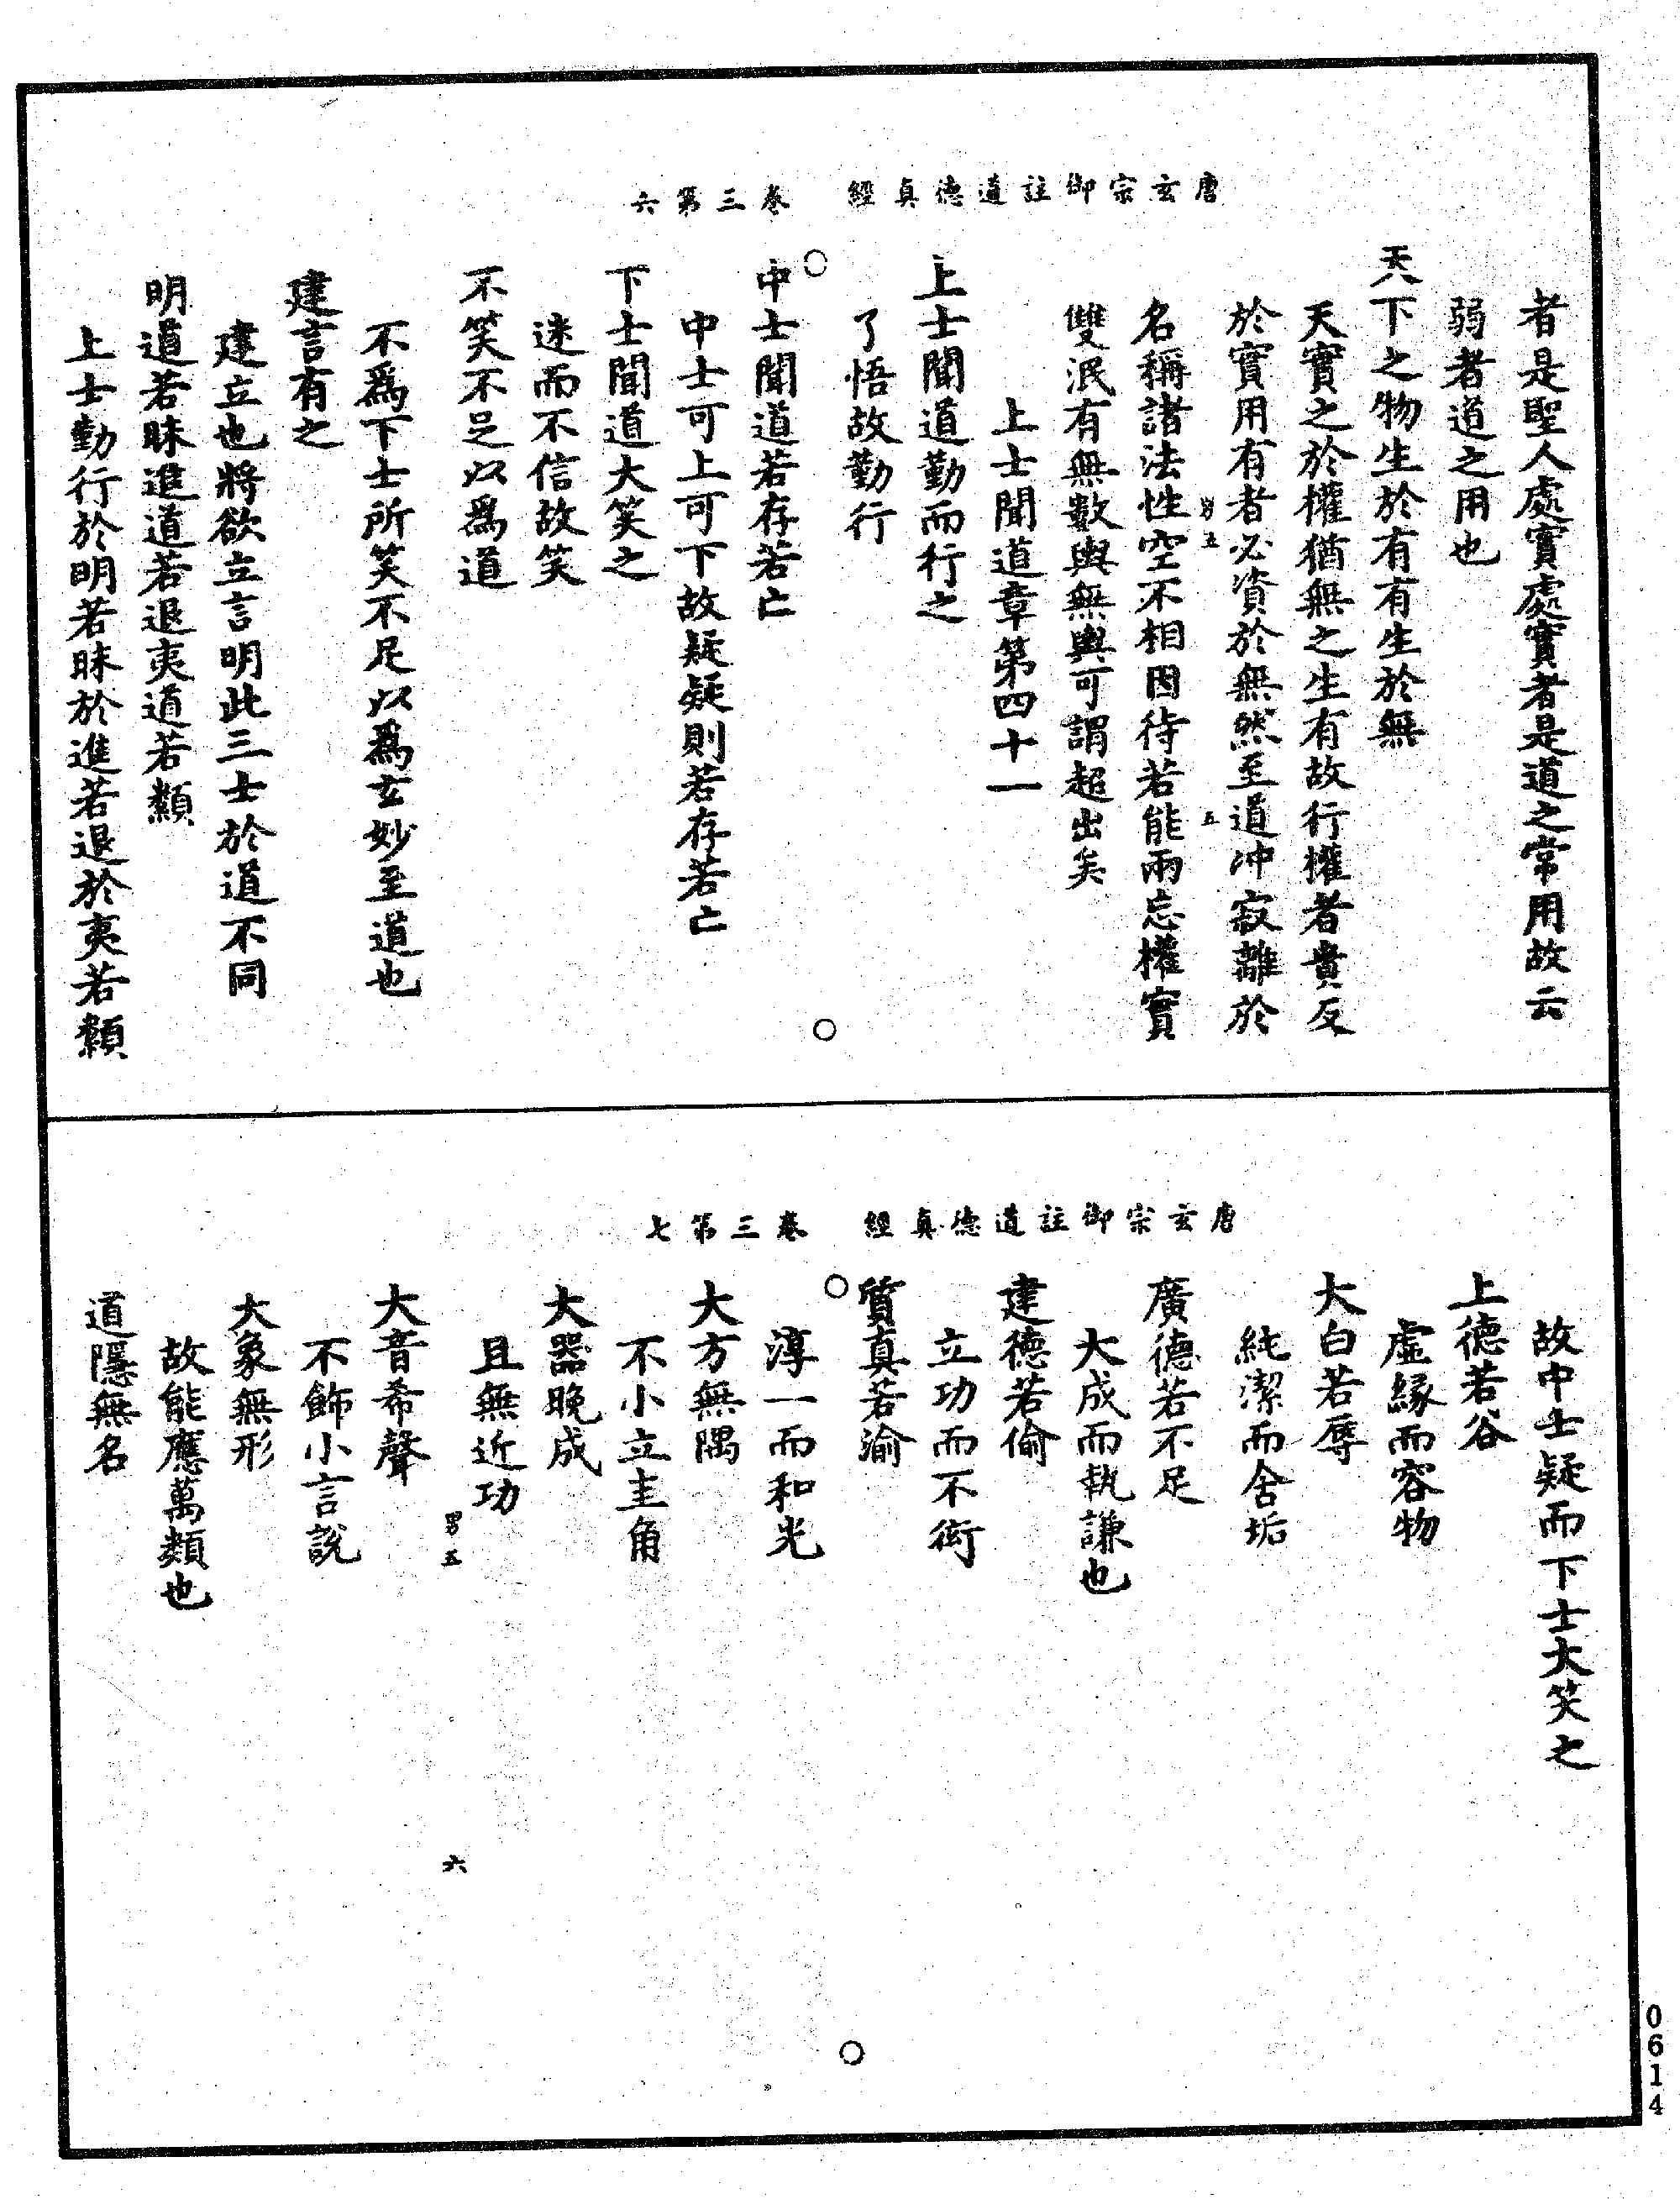 唐玄宗御註道德真經　卷三第六
者是聖人處實處實者是道之常用故云
弱者道之用也
天下之物生於有有生於無
天實之於權猶無之生有故行權者貴反
於實用有者必資於無然至道冲寂離於
男五　五
名稱諸法性空不相因待若能兩忘權實
雙泯有無數輿無輿可謂超出矣
上士聞道章第四十一
上士聞道勤而行之
了悟故勤行
中士聞道若存若亡
中士可上可下故疑疑則若存若亡
下士聞道大笑之
迷而不信故笑
不笑不足以爲道
不爲下士所笑不足以爲玄妙至道也
建言有之
建立也將欲立言明此三士於道不同
明道若昧進道若退夷道若纇
上士勤行於明若昧於進若退於夷若纇
唐玄宗御註道德真經　卷三第七
故中士疑而下士大笑之
上德若谷
虛緣而容物
大白若辱
純潔而含垢
廣德若不足
大成而執謙也
建德若偷
立功而不衒
質真若渝
淳一而和光
大方無隅
不小立圭角
大器晚成
且無近功
男五　六
大音希聲
不飾小言說
大象無形
故能應萬類也
道隱無名
0614